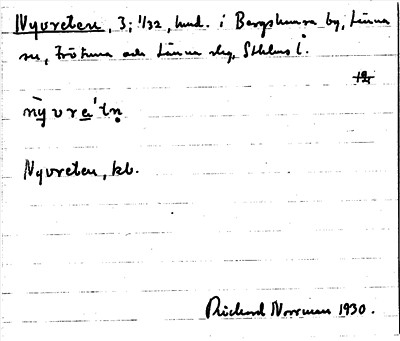 Nyvreten, 3; 1/32, hmd. i Bergshamra by, Länna
sn, Frötuna och Länna slg, Sthlms l.
nỳvre`tn̥
Nyvreten, kb.
Richard Norrman 1930.